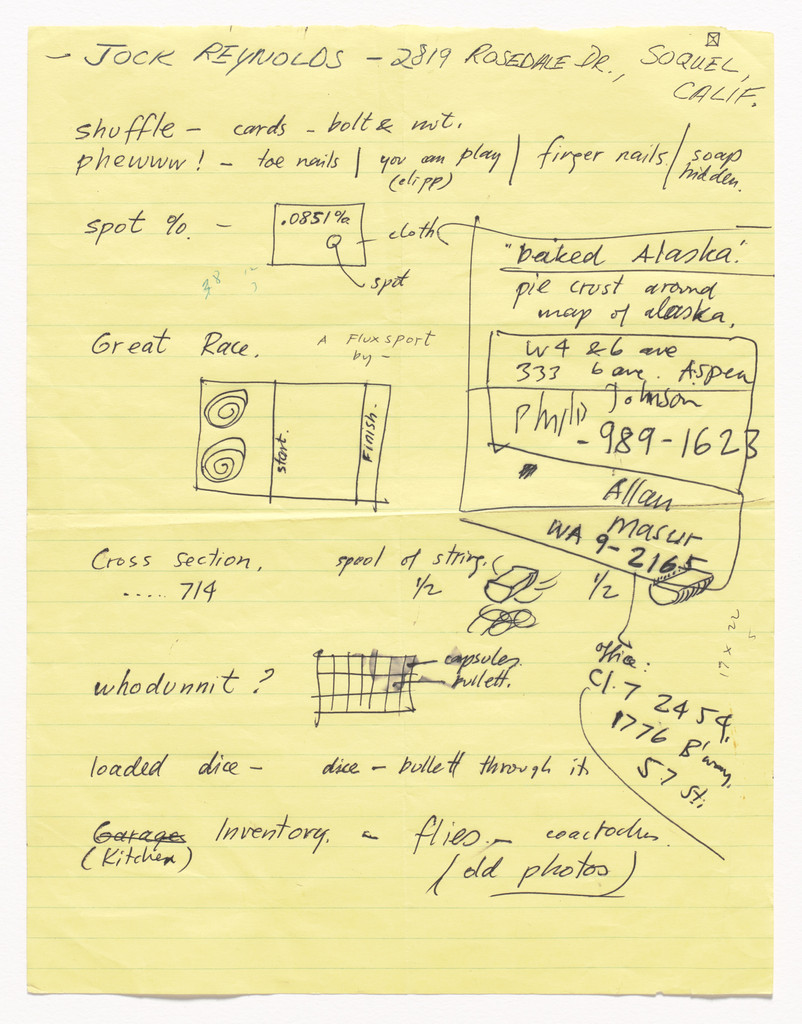 - JOCK REYNOLDS - 2819 ROSEDALE DR., SOQUEL,
CALIF.
shuffle - cards - bolt & nut.
phewww! - toe nails | you can play | finger nails / soap
(clipp) hidden.
spot %. - .0851% cloth
spot
38
"baked Alaska."
pie crust around
map of alaska.
W4 & 6 ave
333 6 ave. Aspen
Philip Johnson
- 989-1623
Allan
Masur
WA 9-2165
Great Race. A Fluxsport
by -
start. Finish.
Cross section. spool of string.
..... 714 1/2 1/2
17 x 22
5
office:
CI. 7 2454.
1776 B'way.
57 St.
whodunnit? capsules.
bullett.
loaded dice - dice - bullett through it
Garage Inventory. - flies. -
(Kitchen) (old photos)